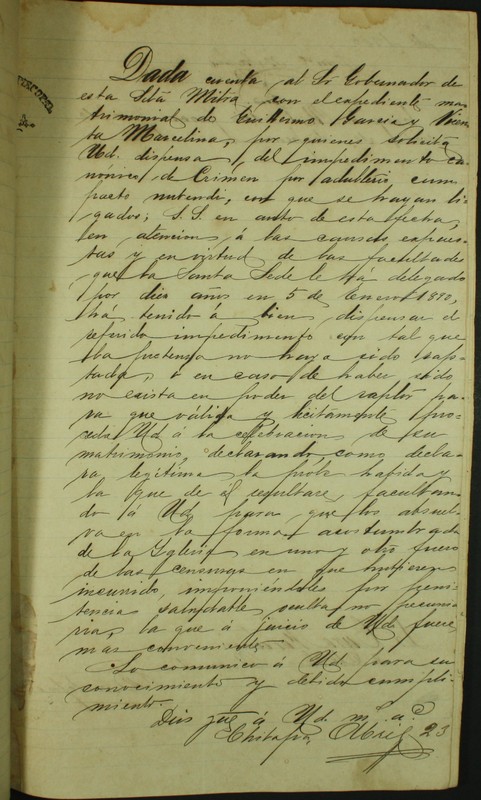 Dada cuenta, al Sr Gobernador de
esta Sda Mitra, con el expediente ma-
trimonial de Guillermo Garcia y Vicen-
ta Marcelina, por quienes solicita
Ud. dispensa, del impedimento ca-
nonico de Crimen por adulterio cum
pacto nubendi, con que se hayan li-
gados; S.S. en auto de esta fecha,
en atencion á las causas expues-
tas y en virtud de las facultades
que la Santa Sede le há delegado
por diez años en 5 de Enero 1890,
há tenido á bien dispensar el
referido impedimento con tal que
la pretensa no haya sido rap-
tada, ó en caso de haber sido
no exista en poder del raptor pa-
ra que válida y licitamente pro-
ceda Ud. á la celebracion de su
matrimonio, declarando como decla-
ra, legítima la prole habida y
la que de él resultare, facultan-
do á Ud. para que los absuel-
va en la forma acostumbrada
de la Iglesia en uno y otro fuero
de las censuras en que hubieren
incurrido, imponiéndoles por peni-
tencia saludable, oculta no pecunia-
ria, la que á juicio de Ud. fuere
mas conveniente.
Lo comunico á Ud. para su
conocimiento y debido cumpli-
miento.
Dios gue á Ud. m. a.s
Chilapa, Abril 23